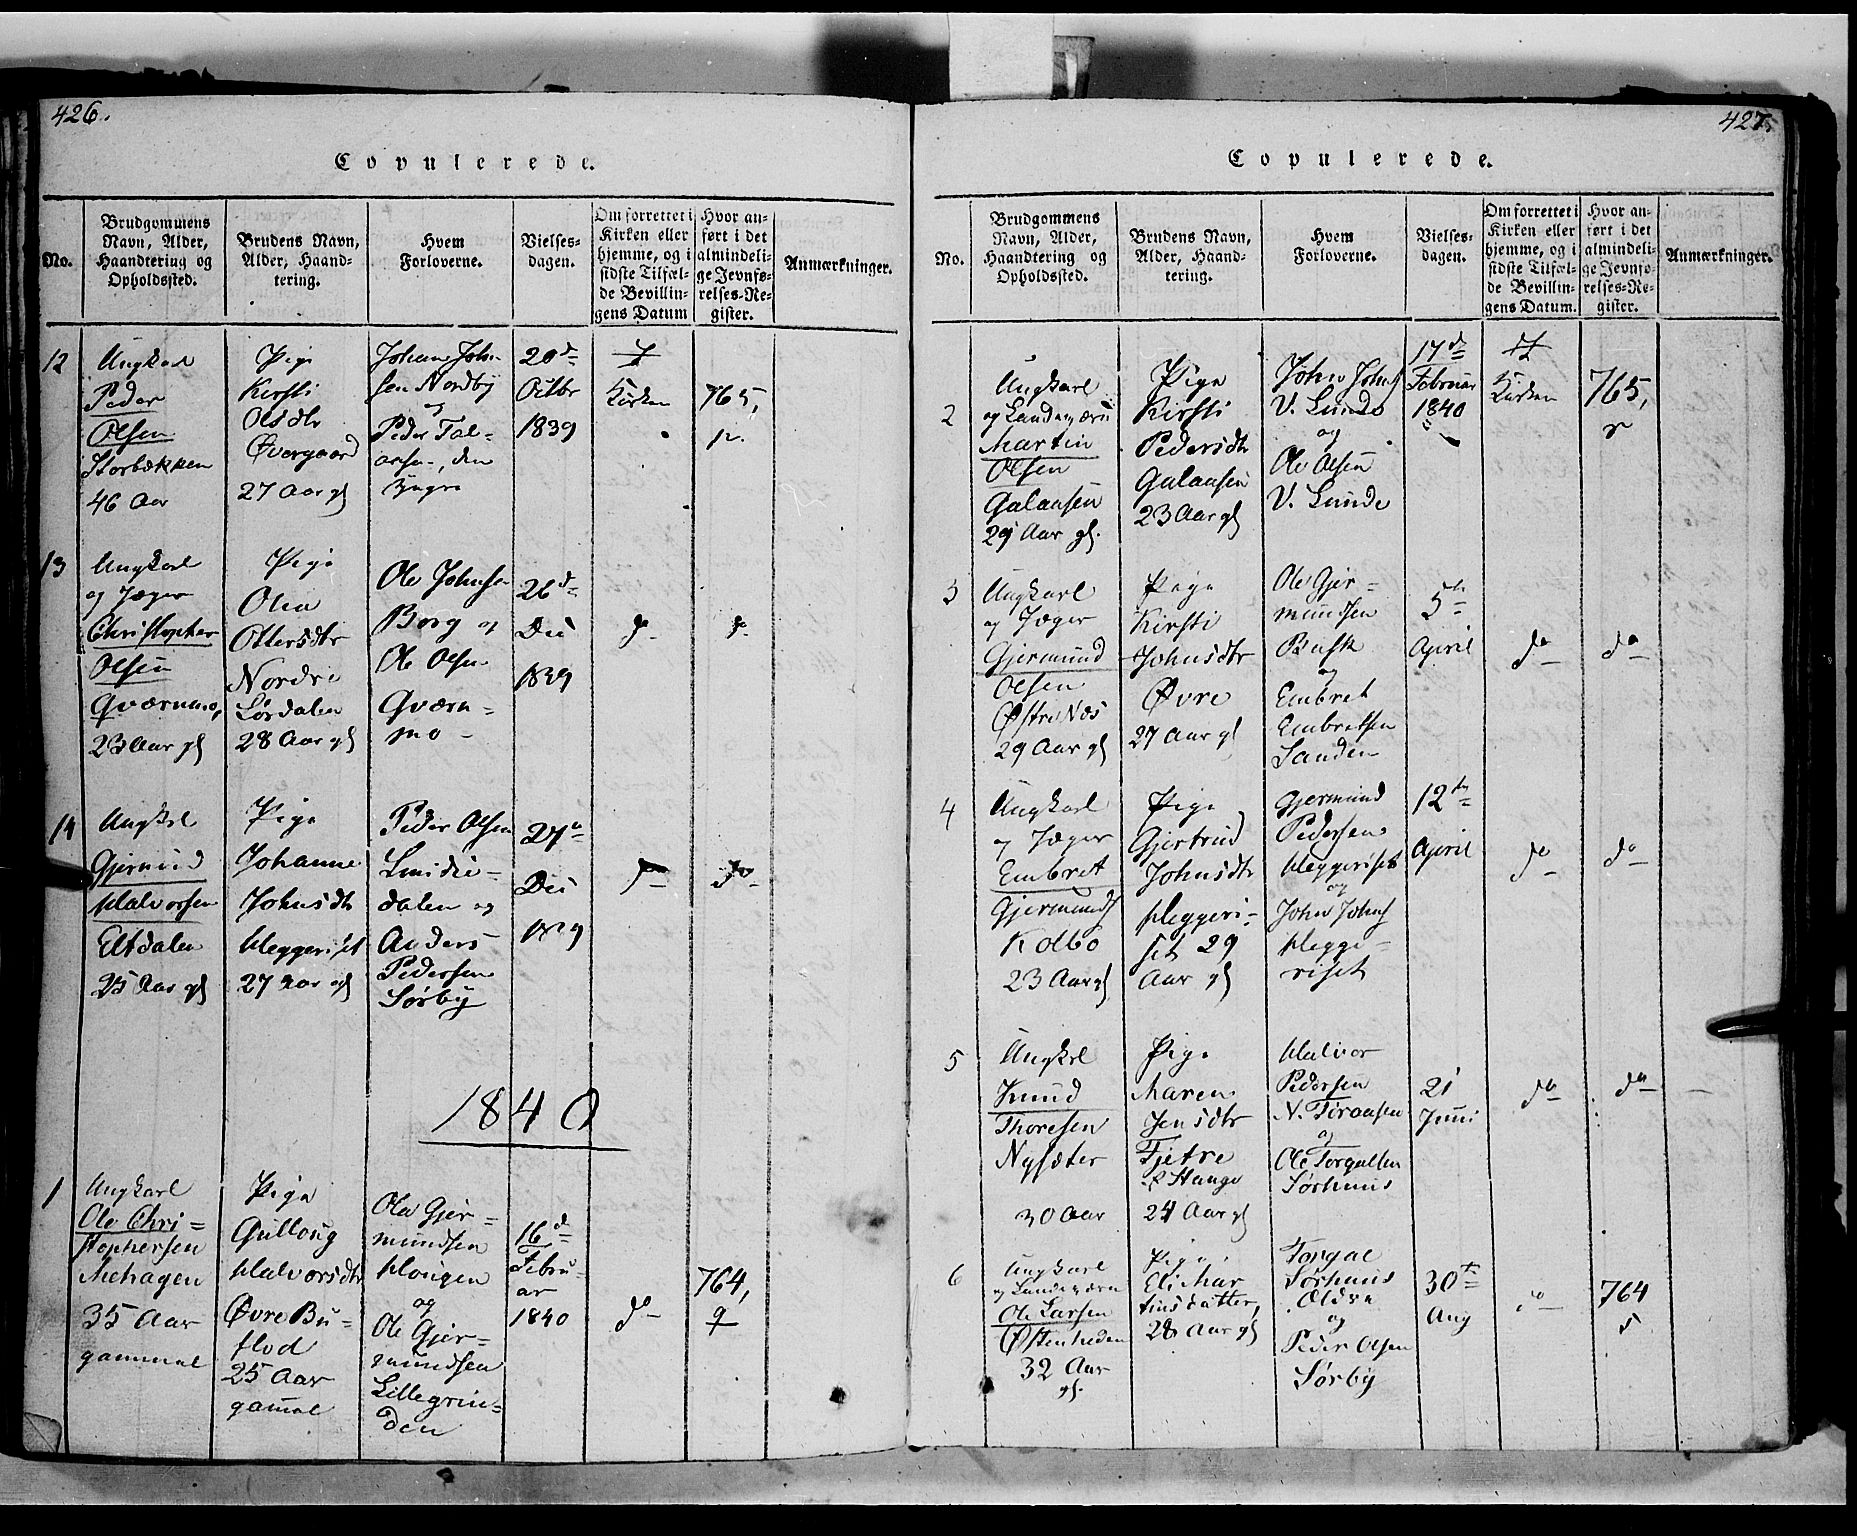 426.
Copulerede.
No.
Brudgommens
Navn, Alder,
Haandtering og
Opholdssted.
Brudens Navn,
Alder, Haand-
tering.
Hvem
Forloverne.
Vielses-
dagen.
Om forrettet i
Kirken eller
hjemme, og i
sidste Tilfæl-
de Bevillin-
gens Datum
Hvor an-
ført i det
almindeli-
ge Jevnfø-
relses-Re-
gister.
Anmærkninger.
12
Ungkarl
Peder
Olsen
Storbækken
46 Aar
Pige
Kirsti
Olsdtr
Øvergaard
27 Aar gl
Johan John-
sen Nordby
og
Peder Tol-
den
Yngre
20d
Octbr
1839
Kirken
765,
12.
13
Ungkarl
og Jæger
Christopher
Olsen
Qværnmo,
23 Aar gl
Pige
Olea
Ottersdtr
Nordre
Lørdalen
28 Aar gl
Ole Johnsen
Borg og
Ole Olsen
Qværn-
mo
26d
Dec
1839
do
do
14
Ungkrl
Gjermund
Halvorsen
Eltdalen
25 Aar gl
Pige
Johanne
Johnsdtr
Heggeriset
27 Aar gl
Peder Olsen
Lunde-
dalen og
Anders
Pedersen
Sørby
27e
Dec
1839
do
do
1840
1
Ungkarl
Ole Chri=
stophersen
Nehagen
35 Aar
gammel
Pige
Gulloug
Halvorsdtr
Øvre Bu-
flod
25 Aar
gammel
Ole Gjer=
mundsen
Hougen
og
Ole Gjer-
mundsen
Lillegrin-
den
16d
Febru-
ar
1840
do
764,
9
427.
Copulerede.
No.
Brudgommens
Navn, Alder,
Haandtering og
Opholdssted.
Brudens Navn,
Alder, Haand-
tering.
Hvem
Forloverne.
Vielses-
dagen.
Om forrettet i
Kirken eller
hjemme, og i
sidste Tilfæl-
de Bevillin-
gens Datum.
Hvor an-
ført i det
almindeli-
ge Jevnfø-
relses-Re-
gister.
Anmærkninger.
2
Ungkarl
og Landeværn
Martin
Olsen
Galaasen
29 Aar gl.
Pige
Kirsti
Pedersdtr
Galaasen
23 Aar gl
John Johns
V. Lunde
og
Ole Olsen
V. Lunde
17de
Februar
1840
Kirken
765,
3
Ungkarl
og Jæger
Gjermund
Olsen
Østre Næs
29 Aar gl
Pige
Kirsti
Johnsdtr
Øvre
27 Aar gl
Ole Gjer-
mundsen
Busk
og
Embret
Embretsen
Sanden
5te
April
do
do
4
Ungkarl
og Jæger
Embret
Gjermunds
Kolbo
23 Aar gl
Pige
Gjertrud
Johnsdtr
Heggeri-
set 29
Aar gl
Gjermund
Pedersen
Heggeriset
og
John Johns
Hegge-
riset
12te
April
do
do
5
Ungkrl
Knud
Thoresen
Nysæter
30 Aar
Pige
Maren
Jensdtr
Fjetre
Stange
24 Aar gl
Halvor
Pedersen
N. Toraasen
og
Ole Torgalsen
Sørhuus
21
Juni
do
do
6
Ungkarl
og Landeværn
Ole Larsen
Østenheden
32 Aar
gl.
Pige
Eli Mar
tinsdatter,
28 Aar gl
Torgal
Sørhuus
Oldre
og
Peder Olsen
Sørby
30te
Aug
do
764
5